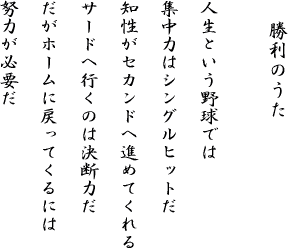 勝利のうた
人生という野球では
集中力はシングルヒットだ
知性がセカンドへ進めてくれる
サードへ行くのは決断力だ
だがホームに戻ってくるには
努力が必要だ